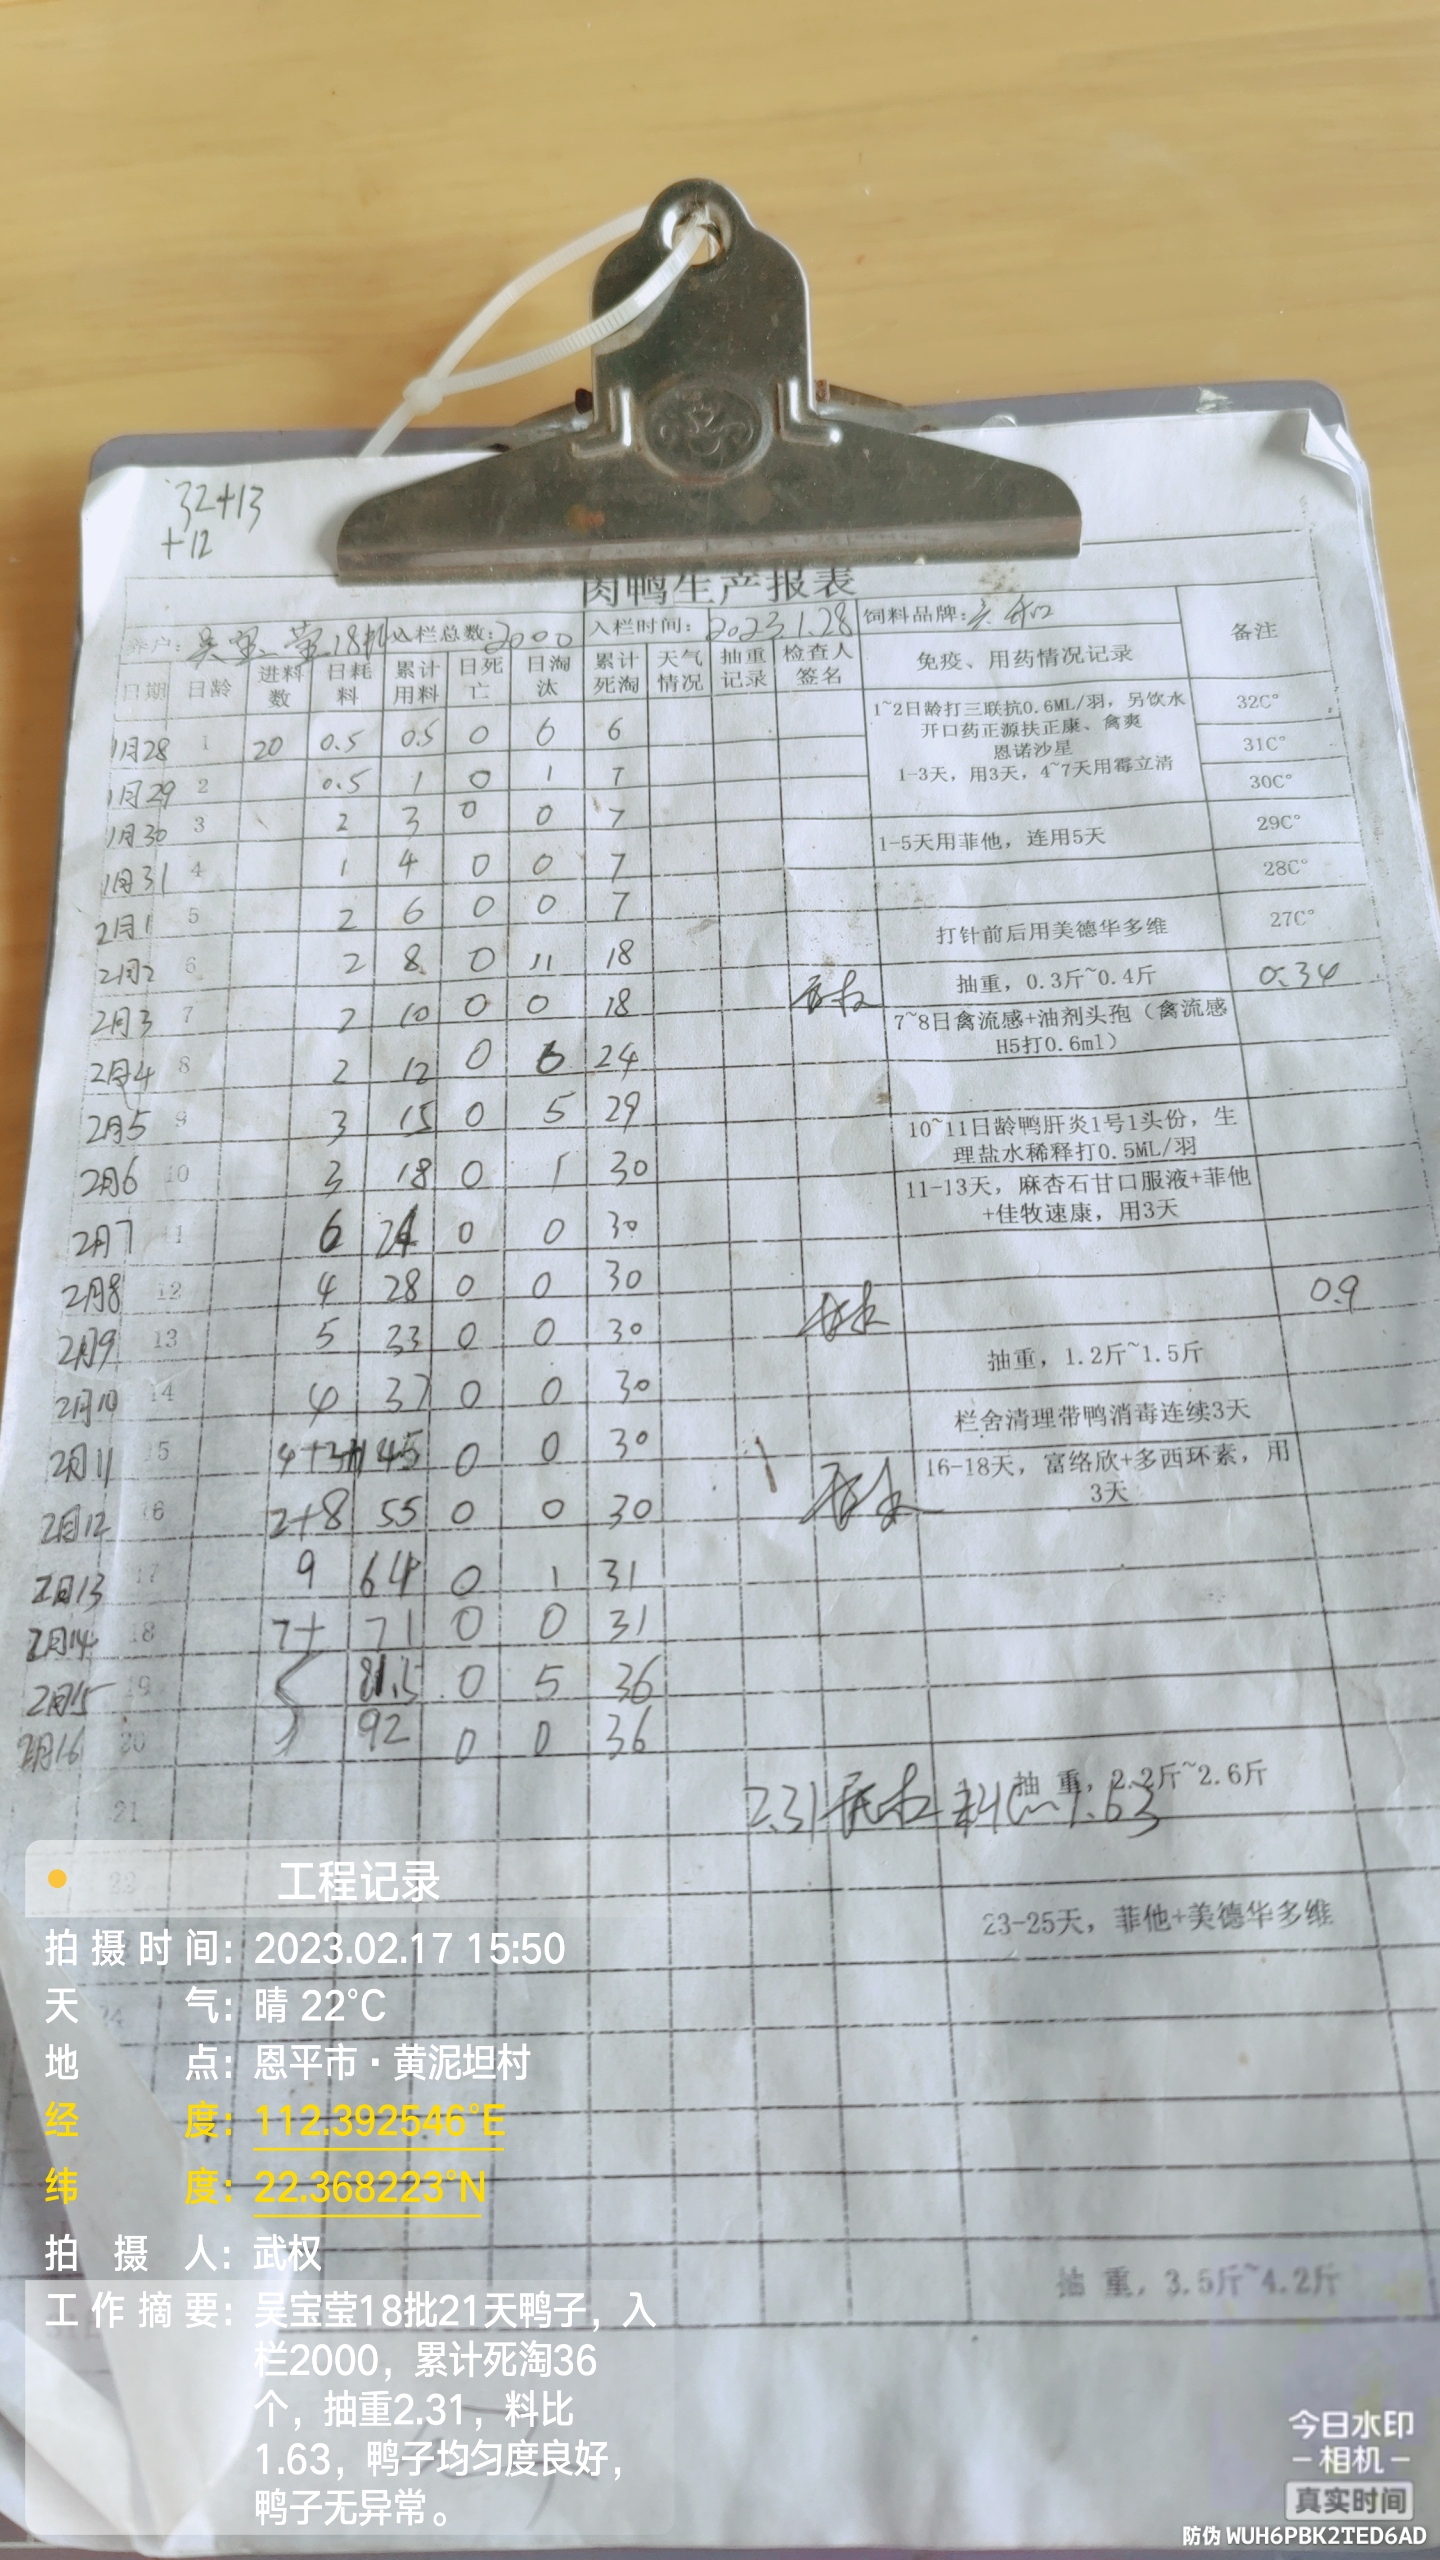 32+13
+12
肉鸭生产报表
养户: 吴宝莹18批 入栏总数:2000 入栏时间: 2023.1.28 饲料品牌:六和 备注
日期 日龄 进料数 日耗料 累计用料 日死亡 日淘汰 累计死淘 天气情况 抽重记录 检查人签名 免疫、用药情况记录
1月28 1 20 0.5 0.5 0 6 6 1~2日龄打三联抗0.6ML/羽, 另饮水 32C°
开口药正源扶正康、禽爽
1月29 2 0.5 1 0 1 7 恩诺沙星 31C°
1-3天, 用3天, 4~7天用霉立清
1月30 3 2 3 0 0 7 30C°
1月31 4 1 4 0 0 7 1-5天用菲他, 连用5天 29C°
2月1 5 2 6 0 0 7 28C°
2月2 6 2 8 0 11 18 打针前后用美德华多维 27C°
2月3 7 2 10 0 0 18 抽重, 0.3斤~0.4斤 0.34
2月4 8 2 12 0 6 24 7~8日禽流感+油剂头孢（禽流感
H5打0.6ml）
2月5 9 3 15 0 5 29
2月6 10 3 18 0 1 30 10~11日龄鸭肝炎1号1头份, 生
理盐水稀释打0.5ML/羽
2月7 11 6 24 0 0 30 11-13天, 麻杏石甘口服液+菲他
+佳牧速康, 用3天
2月8 12 4 28 0 0 30
2月9 13 5 33 0 0 30 0.9
2月10 14 4 37 0 0 30 抽重, 1.2斤~1.5斤
2月11 15 4+3+1 45 0 0 30 栏舍清理带鸭消毒连续3天
2月12 16 2+8 55 0 0 30 16-18天, 富络欣+多西环素, 用
3天
2月13 17 9 64 0 1 31
2月14 18 7+ 71 0 0 31
2月15 19 81.5 0 5 36
2月16 20 92 0 0 36
21 抽 重, 2.2斤~2.6斤
2.31 武权 料比 1.63
22
23-25天, 菲他+美德华多维
24
抽 重, 3.5斤~4.2斤
工程记录
拍摄时间: 2023.02.17 15:50
天气: 晴 22°C
地点: 恩平市·黄泥坦村
经度: 112.392546°E
纬度: 22.368223°N
拍摄人: 武权
工作摘要: 吴宝莹18批21天鸭子，入
栏2000，累计死淘36
个，抽重2.31，料比
1.63，鸭子均匀度良好，
鸭子无异常。
今日水印
-相机-
真实时间
防伪 WUH6PBK2TED6AD